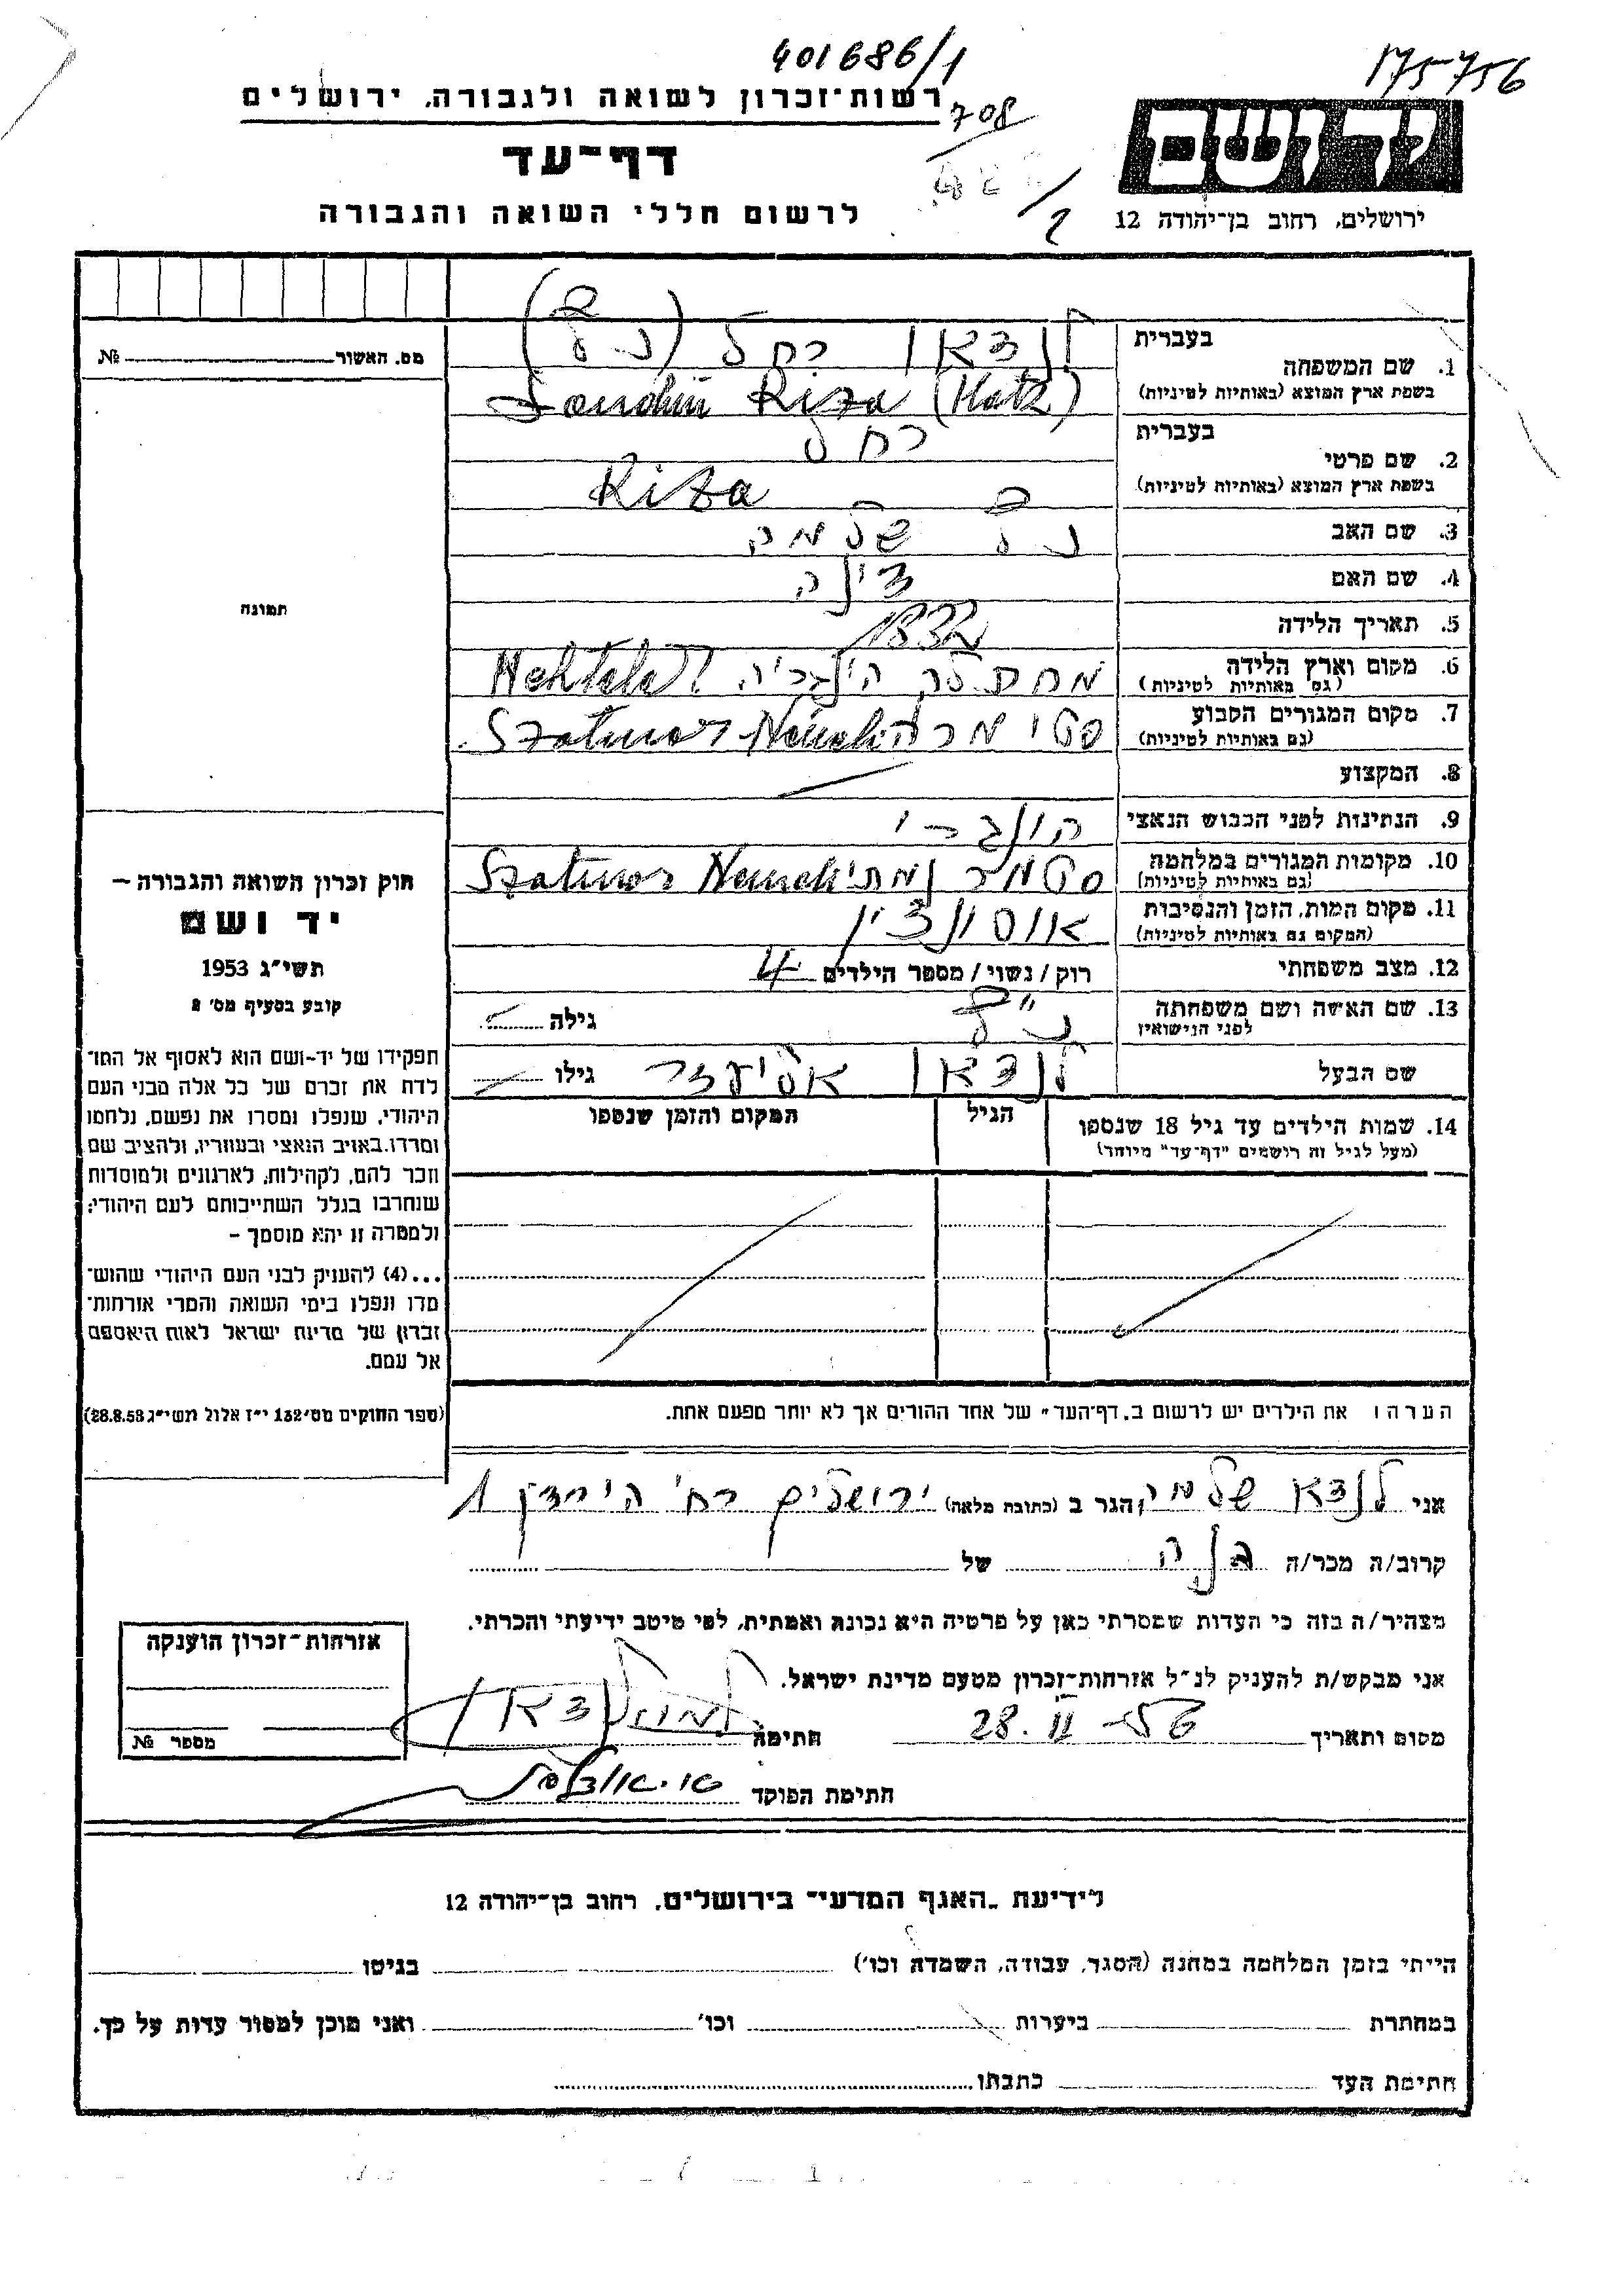 401686/1
175756
רשות־זכרון לשואה ולגבורה, ירושלים
708
דף־עד
לרשום חללי השואה והגבורה
יד ושם
ירושלים, רחוב בן־יהודה 12
1. שם המשפחה
בעברית
לנדאו רחל (כץ)
בשפת ארץ המוצא (באותיות לטיניות)
Riza (Katz)
2. שם פרטי
בעברית
רחל
בשפת ארץ המוצא (באותיות לטיניות)
Riza
3. שם האב
כץ שלמה
4. שם האם
5. תאריך הלידה
6. מקום וארץ הלידה
(גם באותיות לטיניות)
7. מקום המגורים הקבוע
(גם באותיות לטיניות)
Szatmar Németi
8. המקצוע
9. הנתינות לפני הכבוש הנאצי
הונגרי
10. מקומות המגורים במלחמה
(גם באותיות לטיניות)
סטמר נמתי Szatmar Nemeti
11. מקום המות, הזמן והנסיבות
(המקום גם באותיות לטיניות)
12. מצב משפחתי
רוק / נשוי / מספר הילדים 4
13. שם האשה ושם משפחתה
לפני הנישואין
כ"ץ
גילה
שם הבעל
לנדאו אליעזר
גילו
14. שמות הילדים עד גיל 18 שנספו
(מעל לגיל זה רושמים "דף־עד" מיוחד)
הגיל
המקום והזמן שנספו
הערה: את הילדים יש לרשום ב"דף־העד" של אחד ההורים אך לא יותר מפעם אחת.
מס. האשור № 
תמונה
חוק זכרון השואה והגבורה —
יד ושם
תשי"ג 1953
קובע בסעיף מס' 2
תפקידו של יד-ושם הוא לאסוף אל המו־
לדת את זכרם של כל אלה מבני העם
היהודי, שנפלו ומסרו את נפשם, נלחמו
ומרדו באויב הנאצי ובעוזריו, ולהציב שם
וזכר להם, לקהילות, לארגונים ולמוסדות
שנחרבו בגלל השתייכותם לעם היהודי;
ולמטרה זו יהא מוסמך –
...(4) להעניק לבני העם היהודי שהוש־
מדו ונפלו בימי השואה והמרי אזרחות־
זכרון של מדינת ישראל לאות היאספם
אל עמם.
(ספר החוקים מס' 132 י"ז אלול תשי"ג 28.8.53)
אני לנדאו שלמה הגר ב (כתובת מלאה) ירושלים רח' הירדן 1
קרוב/ה מכר/ה של
מצהיר/ה בזה כי העדות שמסרתי כאן על פרטיה היא נכונה ואמתית, לפי מיטב ידיעתי והכרתי.
אני מבקש/ת להעניק לנ"ל אזרחות־זכרון מטעם מדינת ישראל.
מקום ותאריך 28. II חתימה
חתימת הפוקד
אזרחות־זכרון הוענקה
מספר №
לידיעת "האגף המדעי" בירושלים, רחוב בן־יהודה 12
הייתי בזמן המלחמה במחנה (הסגר, עבודה, השמדה וכו') בגיטו
במחתרת ביערות וכו' ואני מוכן למסור עדות על כך.
חתימת העד כתבתו